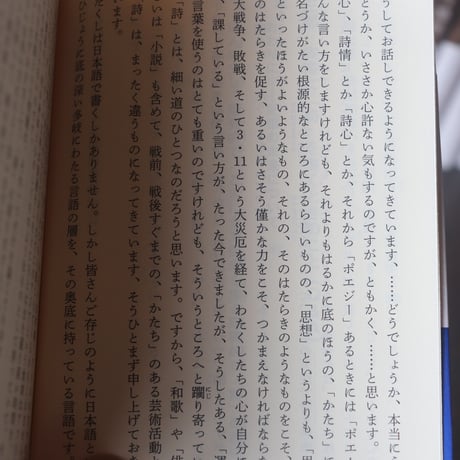 うしてお話しできるようになってきています、……どうでしょうか、本当に
とうか、いささか心許ない気もするのですが、ともかく、……と思います。
心」、「詩情」とか「詩心」とか、それから「ポエジー」あるときには「ポエ
んな言い方をしますけれども、それよりもはるかに底のほうの、「かたち」に
名づけがたい根源的なところにあるらしいものの、「思想」というよりも、「思
といったほうがよいようなもの、それの、そのはたらきのようなものをこそ、
のはたらきを促す、あるいはさそう僅かな力をこそ、つかまえなければならな
大戦争、敗戦、そして3・11という大災厄を経て、わたくしたちの心が自分に
、「課している」という言い方が、たった今できましたが、そうしたある、「運
言葉を使うのはとても重いのですけれども、そういうところへと躙り寄ってい
「詩」とは、細い道のひとつなのだろうと思います。ですから、「和歌」や「俳
いは「小説」も含めて、戦前、戦後すぐまでの、「かたち」のある芸術活動
詩」は、まったく違うものになってきています、そうひとまず申し上げておき
ます。
たくしは日本語で書くしかありません。しかし皆さんご存じのように日本語と
ひじょうに底の深い多岐にわたる言語の層を、その奥底に持っている言語です